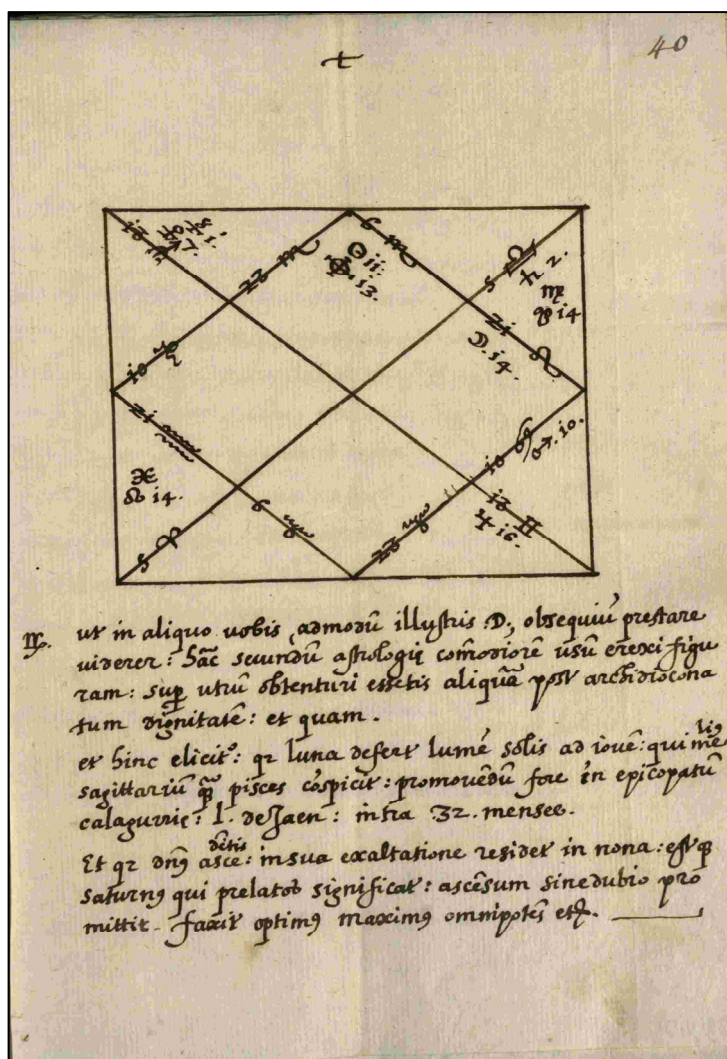 40
+
10 ♑
23 ♏
6 ♏
☉ 11.
13.
5 ♎
♄ 2.
♍
14
21 ♌
☽. 14.
10 ♋
♂. 10.
13 ♊
♃ 16.
23 ♉
6 ♉
5 ♈
♓
☊ 14.
21 ♒
13 ♐
ut in aliquo uobis admodū illustris .D. obsequiū prestare
uiderer: hāc secundū astrologię cōmodiorē usū erexi figu
ram: sup utrū obtenturi essetis aliquā post archidiocona
tum dignitatē: et quam.
et hinc elicit^r: qr luna defert lumē solis ad iouē: qui me lius
sagittariū q̄ pisces cōspicit: promouēdū fore in epicopatū
calagurrię: l. de Jaen: intra 32. menses.
Et qr dnꝰ ascē dētis: in sua exaltatione residet in nona: estq
saturnꝰ qui prelatos significat: ascēsum sinedubio pro
mittit. faxit optimꝰ maximꝰ omnipotēs etc.